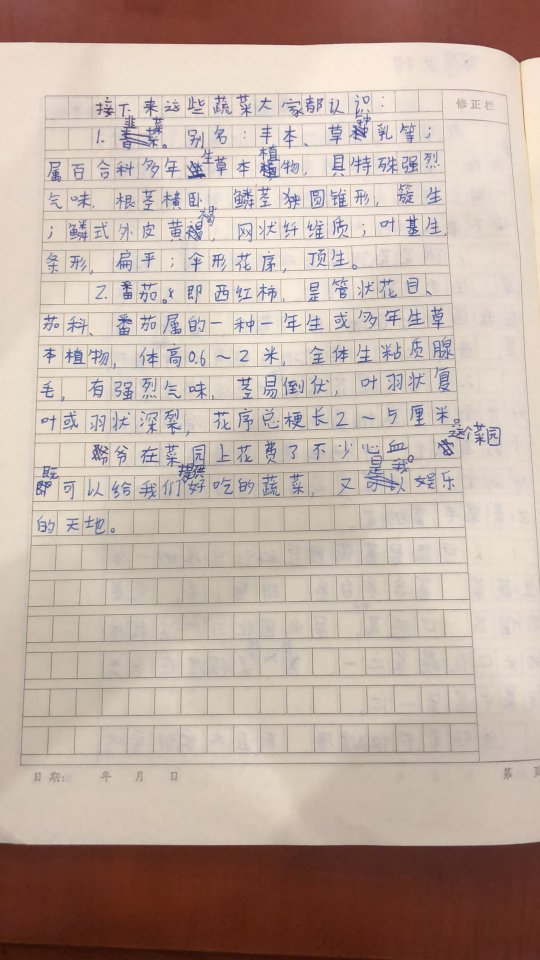 修正栏
接下来这些蔬菜大家都认识：
1. 韭菜。别名：丰本、草钟乳等；
属百合科多年生草本植物，具特殊强烈
气味，根茎横卧，鳞茎狭圆锥形，簇生
；鳞式外皮黄褐，网状纤维质；叶基生，
条形，扁平；伞形花序，顶生。
2. 番茄。即西红柿，是管状花目、
茄科、番茄属的一种一年生或多年生草
本植物，体高0.6～2米，全体生粘质腺
毛，有强烈气味，茎易倒伏，叶羽状复
叶或羽状深裂，花序总梗长2～5厘米。
爷爷在菜园上花费了不少心血。这个菜园
既可以给我们提供好吃的蔬菜，又是我娱乐
的天地。
日期： 年 月 日
第 页